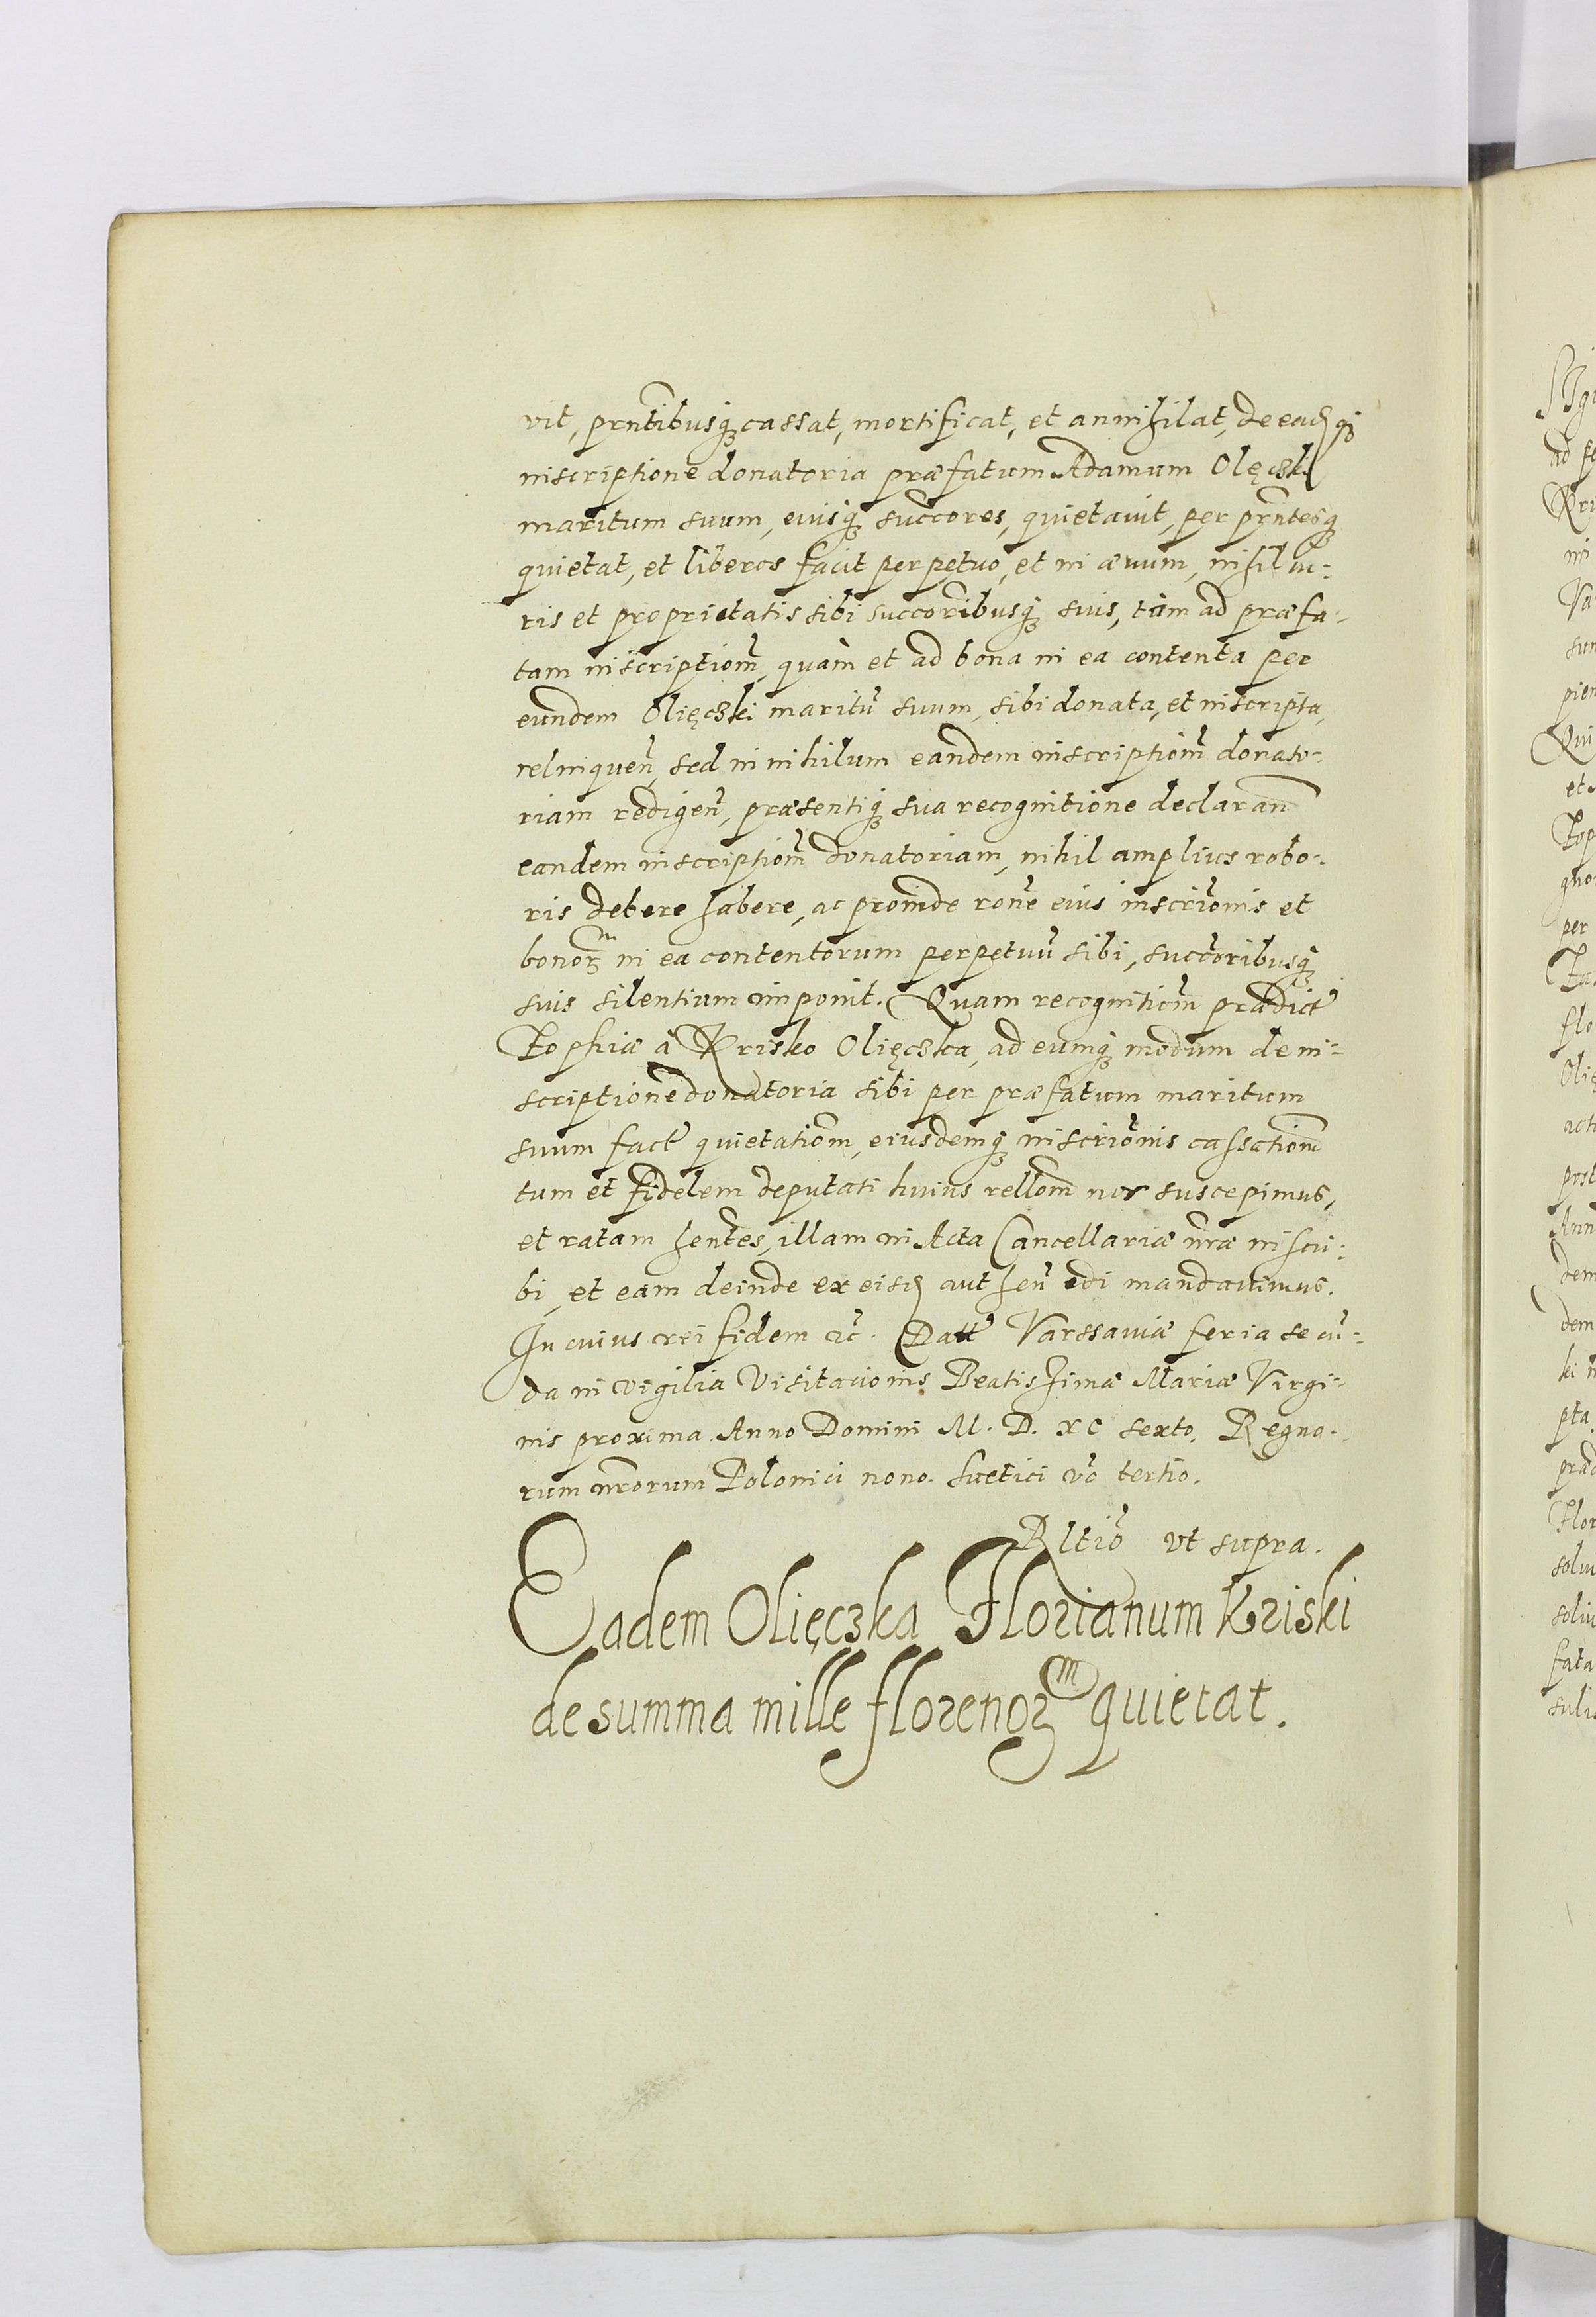 vit, prñtibusq₃ cassat, mortificat, et annihilat, de ead. q₃
inscriptione donatoria præfatum Adamum Olęcski
maritum suum, eiusq₃ succores, quietavit, per prñtesq₃
quietat, et liberos facit perpetuo, et in ævum, nihil iu-
ris et proprietatis sibi succoribusq₃ suis, tàm ad præfa-
tam inscriptiom̃, quàm et ad bona in ea contenta per
eundem Olięcski maritũ suum, sibi donata, et inscripta,
relinqueñ, sed in nihilum eandem inscriptiom̃ donato-
riam redigeñ, præsentiq₃ sua recognitione declarañ
eandem inscriptiom̃ donatoriam, nihil amplius robo-
ris debere habere, ac proinde rone eius inscriõnis et
bonoꝝ in ea contentorum perpetuũ sibi, succoribusq₃
suis silentium imponit. Quam recognitiom̃ prædict
Zophiæ à Krisko Olięcska, ad eumq₃ modum de in-
scriptione donatoria sibi per præfatum maritum
suum fact quietatiom̃, eiusdemq₃ inscriõnis cassatiom̃
tum et fidelem deputati huius rellom̃ nos suscepimus,
et ratam hentes, illam in Acta Cancellariæ nr̃æ inscri-
bi, et eam deinde ex eisd. autheñ edi mandavimus.
In cuius rei fidem &c. Datt Varssaviæ feria secũ-
da in vigilia Visitationis Beatissimæ Mariæ Virgi-
nis proxima. Anno Domini M. D. XC sexto. Regno-
rum nr̃orum Polonici nono. Suetici võ tertio.
Rltiõ vt supra.
Eadem Olięczka Florianum Kriski
de summa mille florenoꝝ quietat.